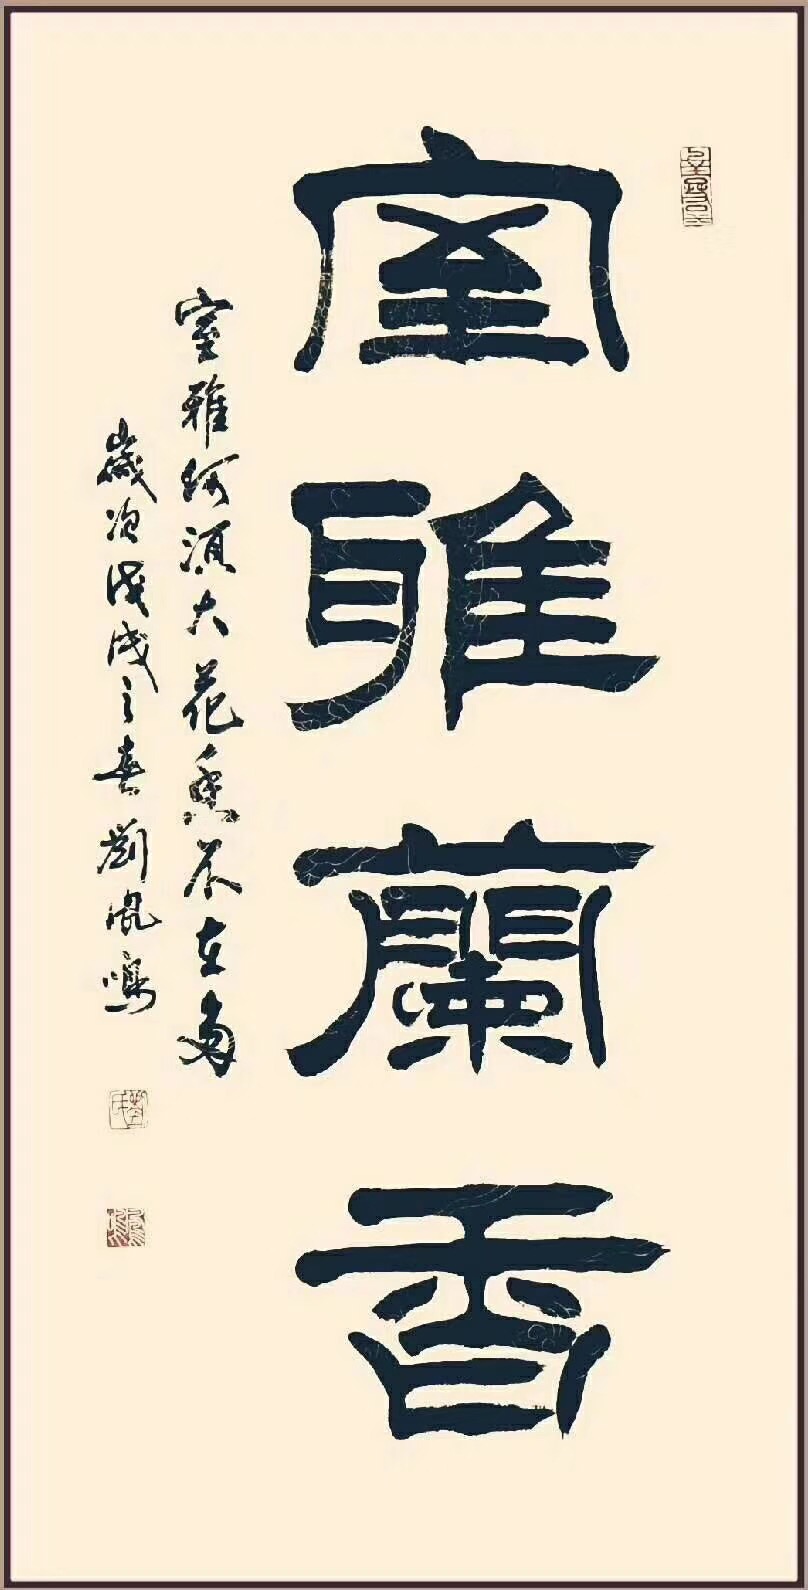 室雅蘭香
室雅何須大花香不在多
歲次戊戌之春劉鳳鳴